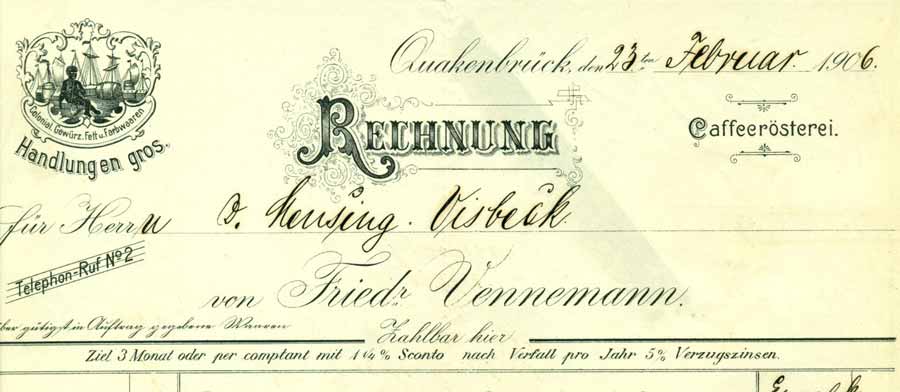 Quakenbrück, den 23ten Februar 1906.
Colonial, Gewürz, Fett u. Farbwaaren
Handlungen gros.
RECHNUNG
Caffeerösterei.
für Herrn D. Mensing. Visbeck.
Telephon-Ruf No 2
von Friedr Vennemann.
über gütigst in Auftrag gegebene Waaren
Zahlbar hier
Ziel 3 Monat oder per comptant mit 1¼% Sconto nach Verfall pro Jahr 5% Verzugszinsen.